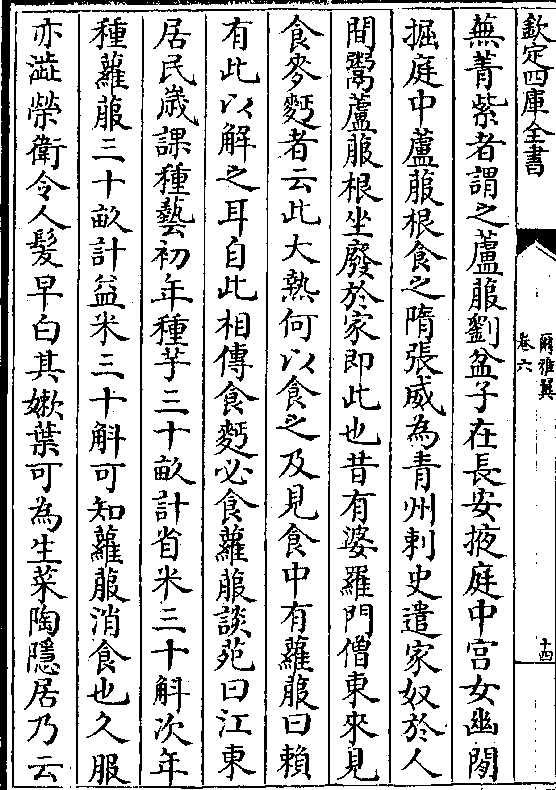 欽定四庫全書
爾雅翼
卷六
十四
蕪菁紫者謂之蘆菔劉盆子在長安掖庭中宫女幽閉
掘庭中蘆菔根食之隋張威為青州刺史遣家奴於人
間鬻蘆菔根坐廢於家即此也昔有婆羅門僧東來見
食麥麫者云此大熱何以食之及見食中有蘿菔曰賴
有此以解之耳自此相傳食麫必食蘿菔談苑曰江東
居民歳課種藝初年種芋三十畝計省米三十斛次年
種蘿菔三十畝計益米三十斛可知蘿菔消食也久服
亦澁榮衛令人髮早白其嫰葉可為生菜陶隱居乃云